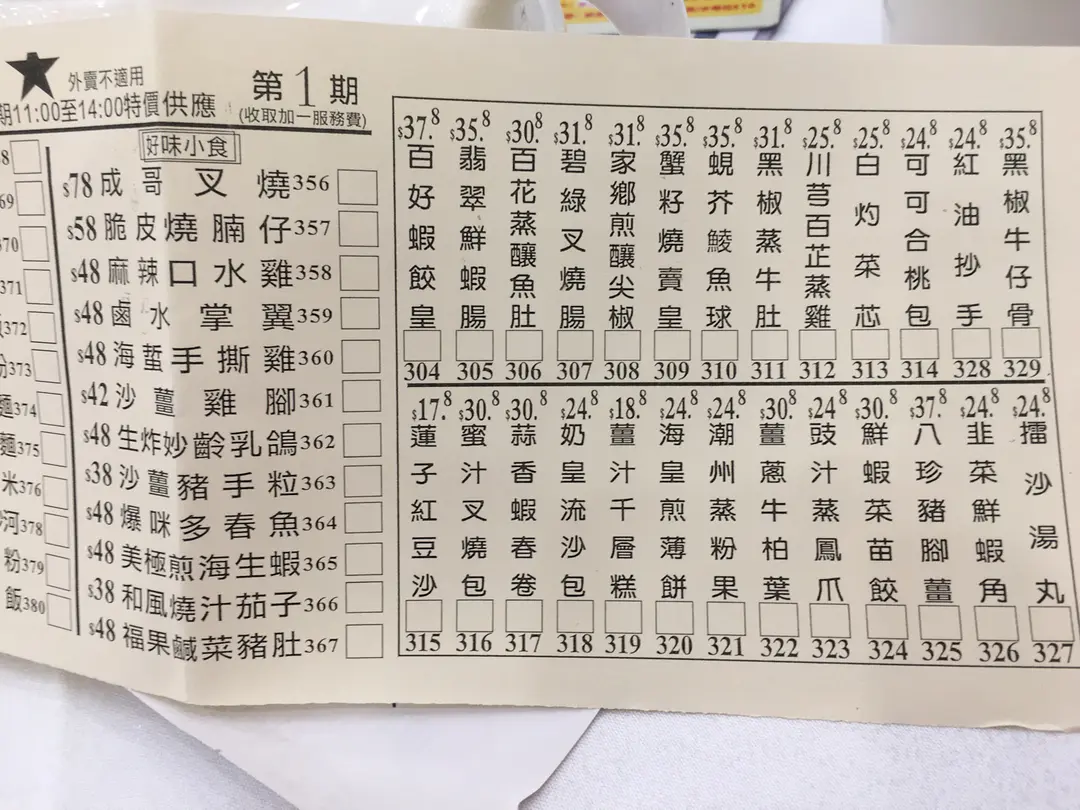 ★ 外賣不適用
期11:00至14:00特價供應
第1期
(收取加一服務費)
好味小食
$78 成哥叉燒 356
$58 脆皮燒腩仔 357
$48 麻辣口水雞 358
$48 鹵水掌翼 359
$48 海蜇手撕雞 360
$42 沙薑雞腳 361
$48 生炸妙齡乳鴿 362
$38 沙薑豬手粒 363
$48 爆咪多春魚 364
$48 美極煎海生蝦 365
$38 和風燒汁茄子 366
$48 福果鹹菜豬肚 367
8
69
370
371
372
粉373
麵374
麵375
米376
河378
粉379
飯380
$37.8 百好蝦餃皇 304
$35.8 翡翠鮮蝦腸 305
$30.8 百花蒸釀魚肚 306
$31.8 碧綠叉燒腸 307
$31.8 家鄉煎釀尖椒 308
$35.8 蟹籽燒賣皇 309
$35.8 蜆芥鯪魚球 310
$31.8 黑椒蒸牛肚 311
$25.8 川芎百芷蒸雞 312
$25.8 白灼菜芯 313
$24.8 可可合桃包 314
$24.8 紅油抄手 328
$35.8 黑椒牛仔骨 329
$17.8 蓮子紅豆沙 315
$30.8 蜜汁叉燒包 316
$30.8 蒜香蝦春卷 317
$24.8 奶皇流沙包 318
$18.8 薑汁千層糕 319
$24.8 海皇煎薄餅 320
$24.8 潮州蒸粉果 321
$30.8 薑蔥牛柏葉 322
$24.8 豉汁蒸鳳爪 323
$30.8 鮮蝦菜苗餃 324
$37.8 八珍豬腳薑 325
$24.8 韭菜鮮蝦角 326
$24.8 擂沙湯丸 327